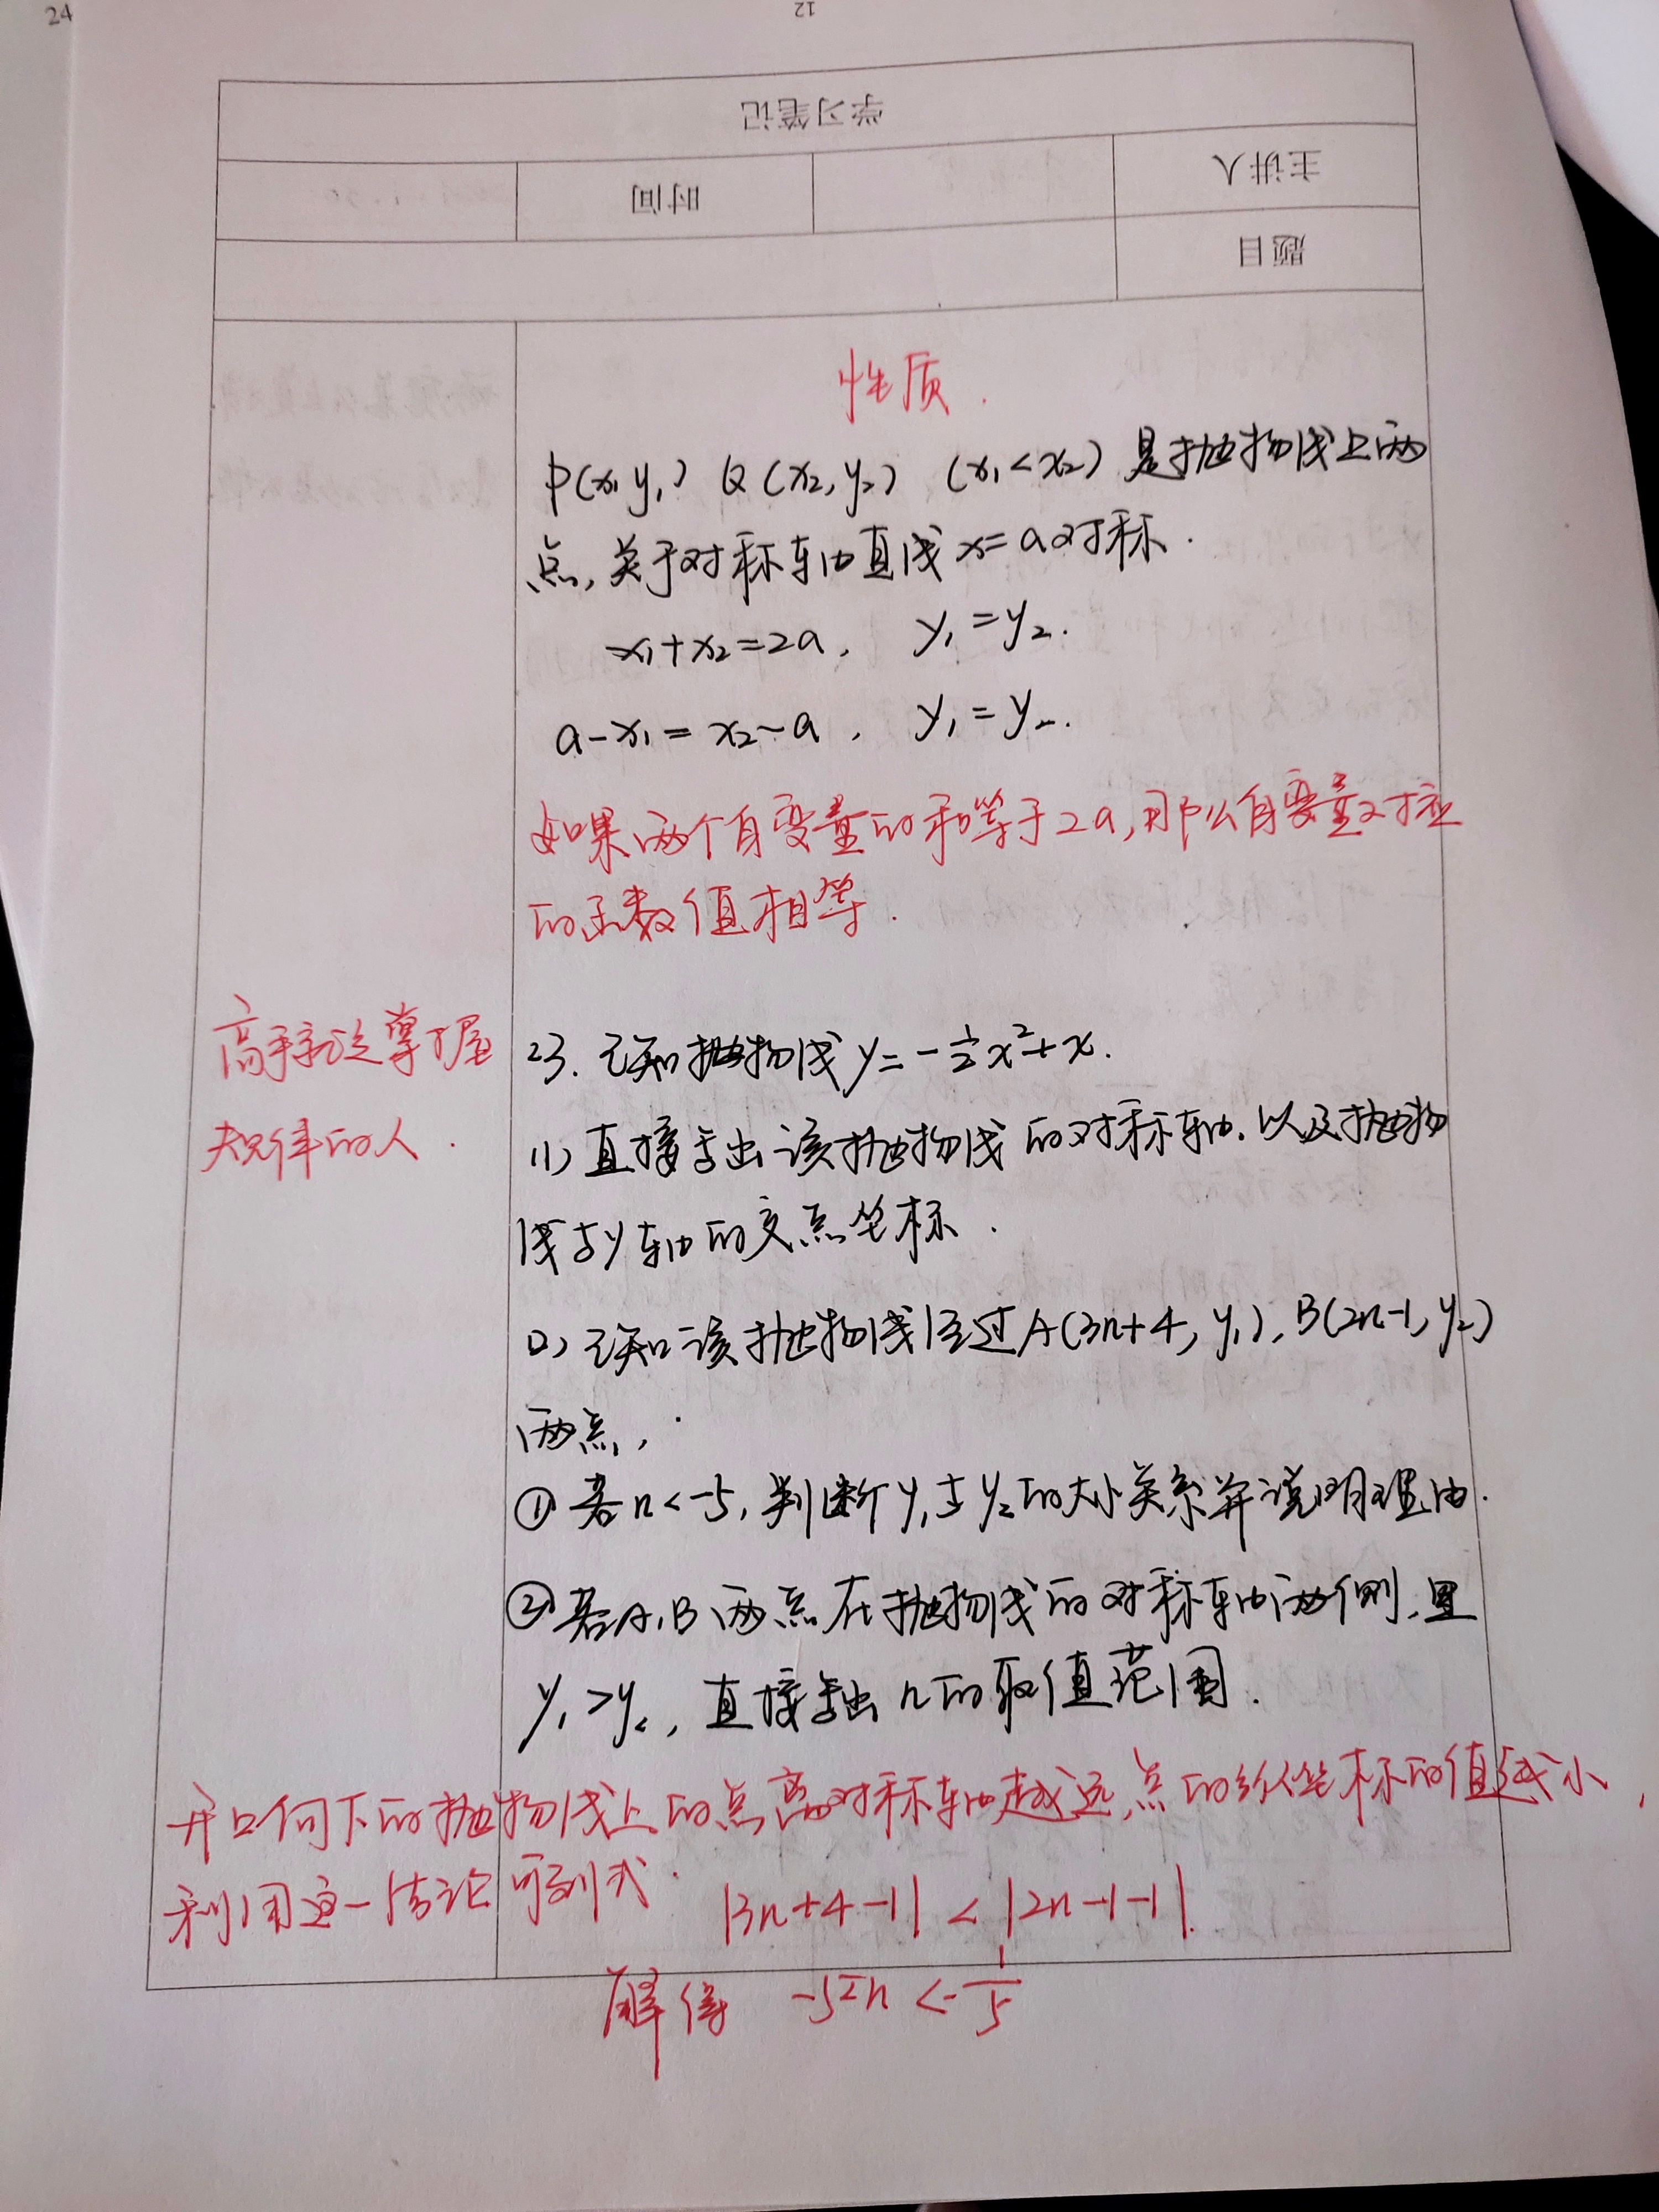 24
12
学习笔记
主讲人
时间
题目
性质.
P(x₁ y₁) Q(x₂, y₂) (x₁<x₂) 是抛物线上两
点, 关于对称轴直线 x=a对称.
x₁+x₂=2a, y₁=y₂.
a-x₁=x₂-a, y₁=y₂.
如果两个自变量的和等于2a,那么自变量对应
的函数值相等.
高手就是掌握
规律的人.
23. 已知抛物线 y=-½x²+x.
(1) 直接写出该抛物线的对称轴.以及抛物
线与y轴的交点坐标.
(2) 已知该抛物线经过A(3n+4, y₁), B(2n-1, y₂)
两点,
① 若n<-5, 判断y₁与y₂的大小关系并说明理由.
② 若A,B两点在抛物线的对称轴两侧,且
y₁>y₂, 直接写出n的取值范围.
开口向下的抛物线上的点离对称轴越远,点的纵坐标的值越小,
利用这一结论可列式.
|3n+4-1| < |2n-1-1|.
解得